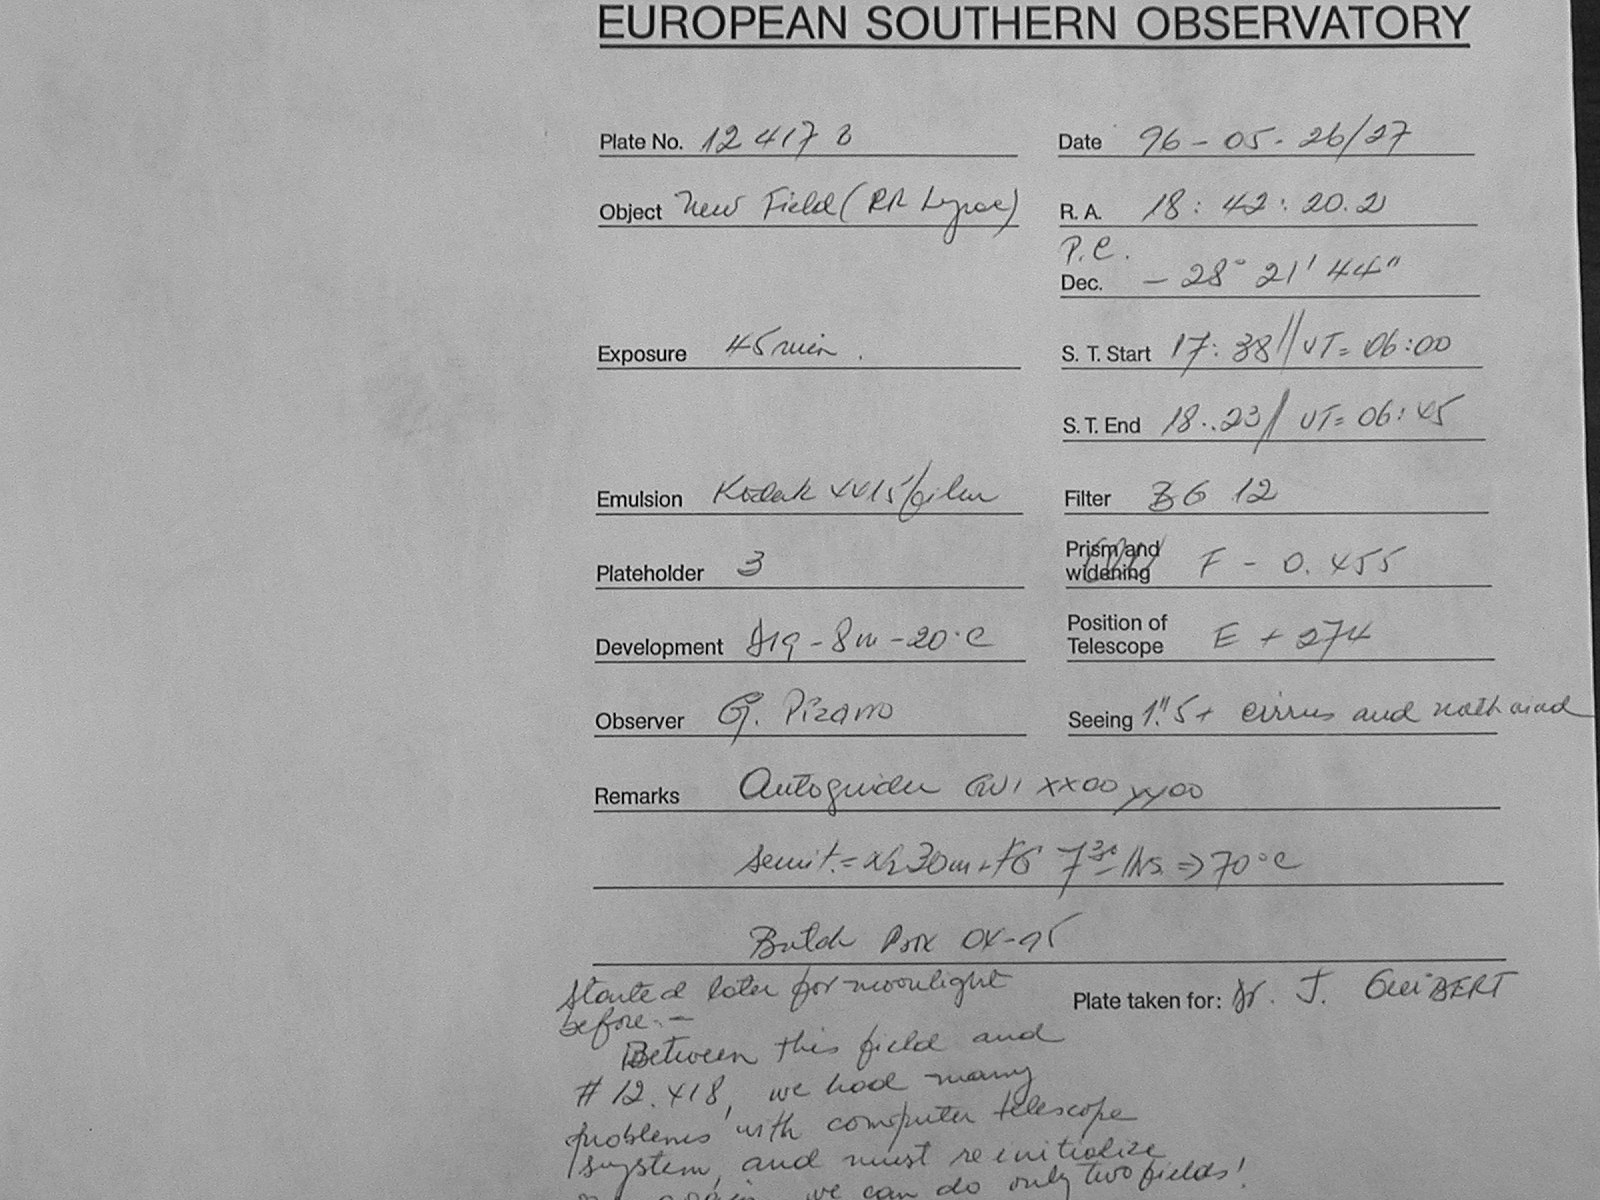 EUROPEAN SOUTHERN OBSERVATORY
Plate No. 12 417 B Date 96 - 05 - 26/27
Object New Field (RR Lyrae) R. A. 18 : 42 : 20.2
P.C.
Dec. - 28° 21' 44"
Exposure 45 min. S. T. Start 17 : 38 // UT = 06:00
S. T. End 18..23 // UT = 06:45
Emulsion Kodak 4415/film Filter BG 12
Plateholder 3 Prism and widening F - 0.455
Development D19 - 8m - 20°C Position of Telescope E + 274
Observer G. Pizarro Seeing 1".5+ cirrus and
Remarks Autoguider GW1 XX00 YY00
=> 70°C
Batch
Started later for moonlight Plate taken for: Dr. J. GUIBERT
before.-
Between this field and
# 12.418, we had many
problems with computer telescope
system, and must reinitialize
again we can do only two fields!